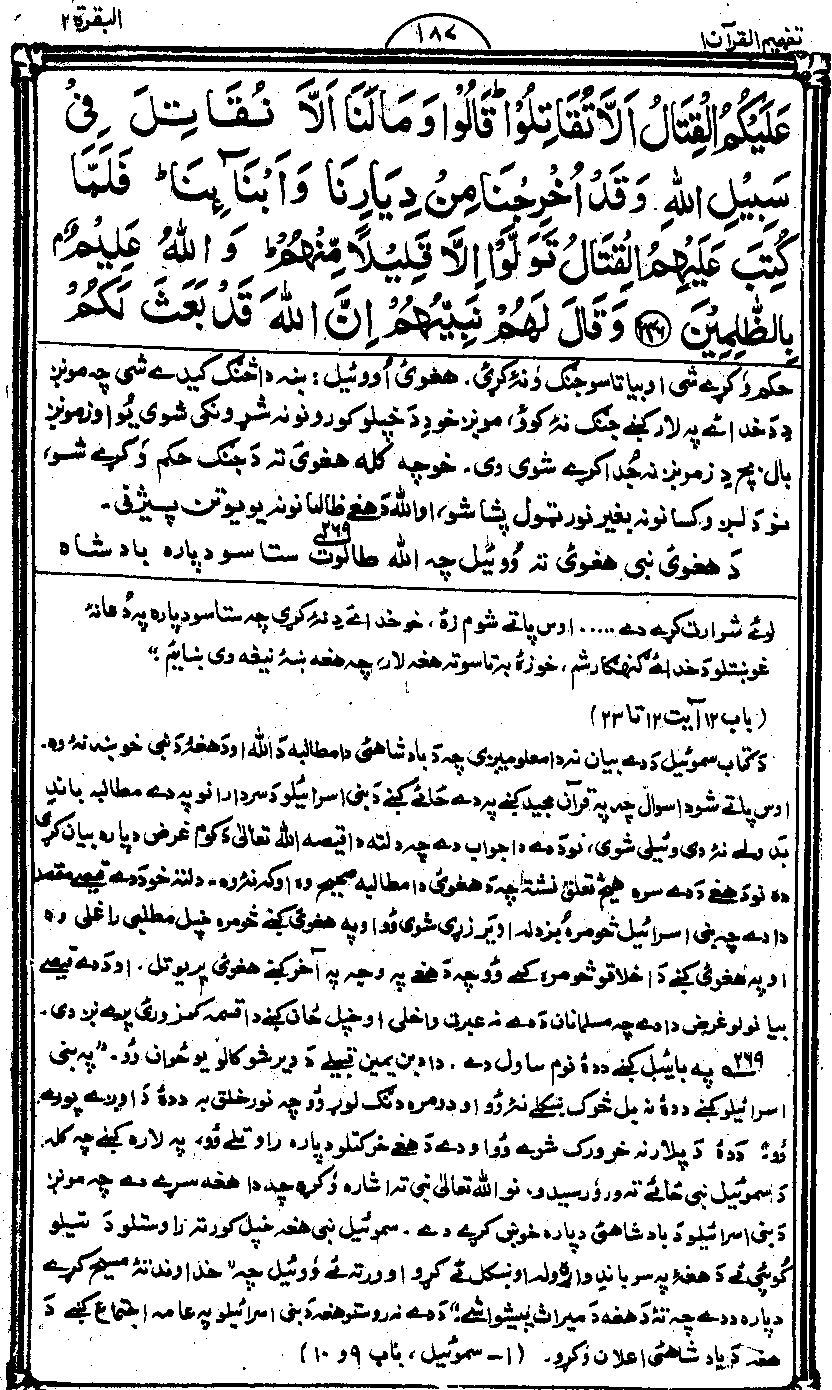 تفهیم القرآن ۱
۱۸۷
البقرة ۲
عَلَیْکُمُ الْقِتَالُ اَلَّا تُقَاتِلُوْا ؕ قَالُوْا وَمَا لَنَا اَلَّا نُقَاتِلَ فِیْ
سَبِیْلِ اللّٰهِ وَقَدْ اُخْرِجْنَا مِنْ دِیَارِنَا وَاَبْنَآئِنَا ؕ فَلَمَّا
کُتِبَ عَلَیْهِمُ الْقِتَالُ تَوَلَّوْا اِلَّا قَلِیْلًا مِّنْهُمْ ؕ وَاللّٰهُ عَلِیْمٌۢ
بِالظّٰلِمِیْنَ ﴿۲۴۶﴾ وَقَالَ لَهُمْ نَبِیُّهُمْ اِنَّ اللّٰهَ قَدْ بَعَثَ لَکُمْ
حکم وٗکړے شی او بیا تاسو جنګ وٗنۀ کړئ. هغوئ اُووئیل: بنه دا څنګ کیدے شی چه مونږ
دِ دَ خدائے په لار کښے جنګ نۀ کوؤ، مونږ خو دِ دَ خپلو کورونو نه شړونکی شوی یُو او زمونږ
بال بچ دِ زمونږ نه جُدا کړے شوی دی. خو چه کله هغوئ ته دَ جنګ حکم وٗکړے شو،
نو دَ لږو کسانو نه بغیر نور ټول پشا شو، او الله دَ هغے ظالمانو نه یو یو تن پیژنی.
دَ هغوئ نبی هغوئ ته وُوئیل چه الله طالوت ۲۶۹ ستاسو دپاره بادشاه
لوئے شرارت کړے دے ..... اوس پاتے شوم زۀ، خو خدائے دِ نۀ کړی چه ستاسو دپاره په دُعا نۀ
غوښتلو دَ خدائے ګنهګار شم، خو زۀ به تاسو ته هغه لار، چه هغه ښۀ نیغه وی ښایم."
(باب ۱۲ آیت ۱۲ تا ۲۳)
دَ کتاب سموئیل دَ دے بیان نه دا معلومیږی چه دَ بادشاهئ دا مطالبه دَ الله او دَ هغۀ دَ نبی خوښه نۀ وه.
اوس پاتے شو دا سوال چه په قرآن مجید کښے په دے ځائے کښے دَ بنی اسرائیلو دَ سردارانو په دے مطالبه باندِ
بد ولے نۀ دی وئیلی شوی، نو دَ دے دا جواب دے چه دلته دا قیصه الله تعالیٰ دَ کوم غرض دپاره بیان کړې
ده نو دَ هغے دَ دے سره هیڅ تعلق نشته چه دَ هغوئ دا مطالبه صحیح وه او که نۀ وه. دلته خو دَ دے قیصے مقصد
دا دے چه بنی اسرائیل څومره بُزدله او یَر زړی شوی وُو او په هغوئ کښے څومره خپل مطلبی راغلی وه
او په هغوئ کښے دَ اخلاقو څومره کمے وُو چه دَ هغے په وجه په آخر کښے هغوئ پریوتل. او دَ دے قیصے
بیانولو غرض دا دے چه مسلمانان دَ دے نه عبرت واخلی او خپل ځان کښے دا قسمه کمزوری پرے نږدی.
۲۶۹ په بائبل کښے ددۀ نوم ساول دے. دا دَ بن یمین قبیلے دَ دیرشو کالو یو ځوان وُو. "په بنی
اسرائیلو کښے ددۀ نه بل څوک ښکلے نۀ وُو او دومره دنګ لوړ وُو چه نور خلق به ددۀ دَ اوږے پورے
وُو." ددۀ دَ پلار نه خر ورک شوے وُو او دے دَ هغے خر کتلو دپاره راوتلے وُو، په لاره کښے چه کله
دَ سموئیل نبی ځائے ته ورؤرسیدو، نو الله تعالیٰ نبی ته اشاره وٗکړه چه دا هغه سړے دے چه مونږ
دَ بنی اسرائیلو دَ بادشاهئ دپاره خوښ کړے دے. سموئیل نبی هغه خپل کور ته راوستلو دَ تیلو
کُوپئ ئے دَ هغۀ په سر باندِ واړوله او ښکل ئے کړو او ورته ئے وُوئیل چه "خداوند تۀ مسح کړے
دپاره ددے چه تۀ دَ هغه دَ میراث پیشوا شے." دَ دے نه روستو هغه دَ بنی اسرائیلو په عامه اجتماع کښے دَ
هغه دَ بادشاهئ اعلان وٗکړو. (۱ - سموئیل، باب ۹ و ۱۰)